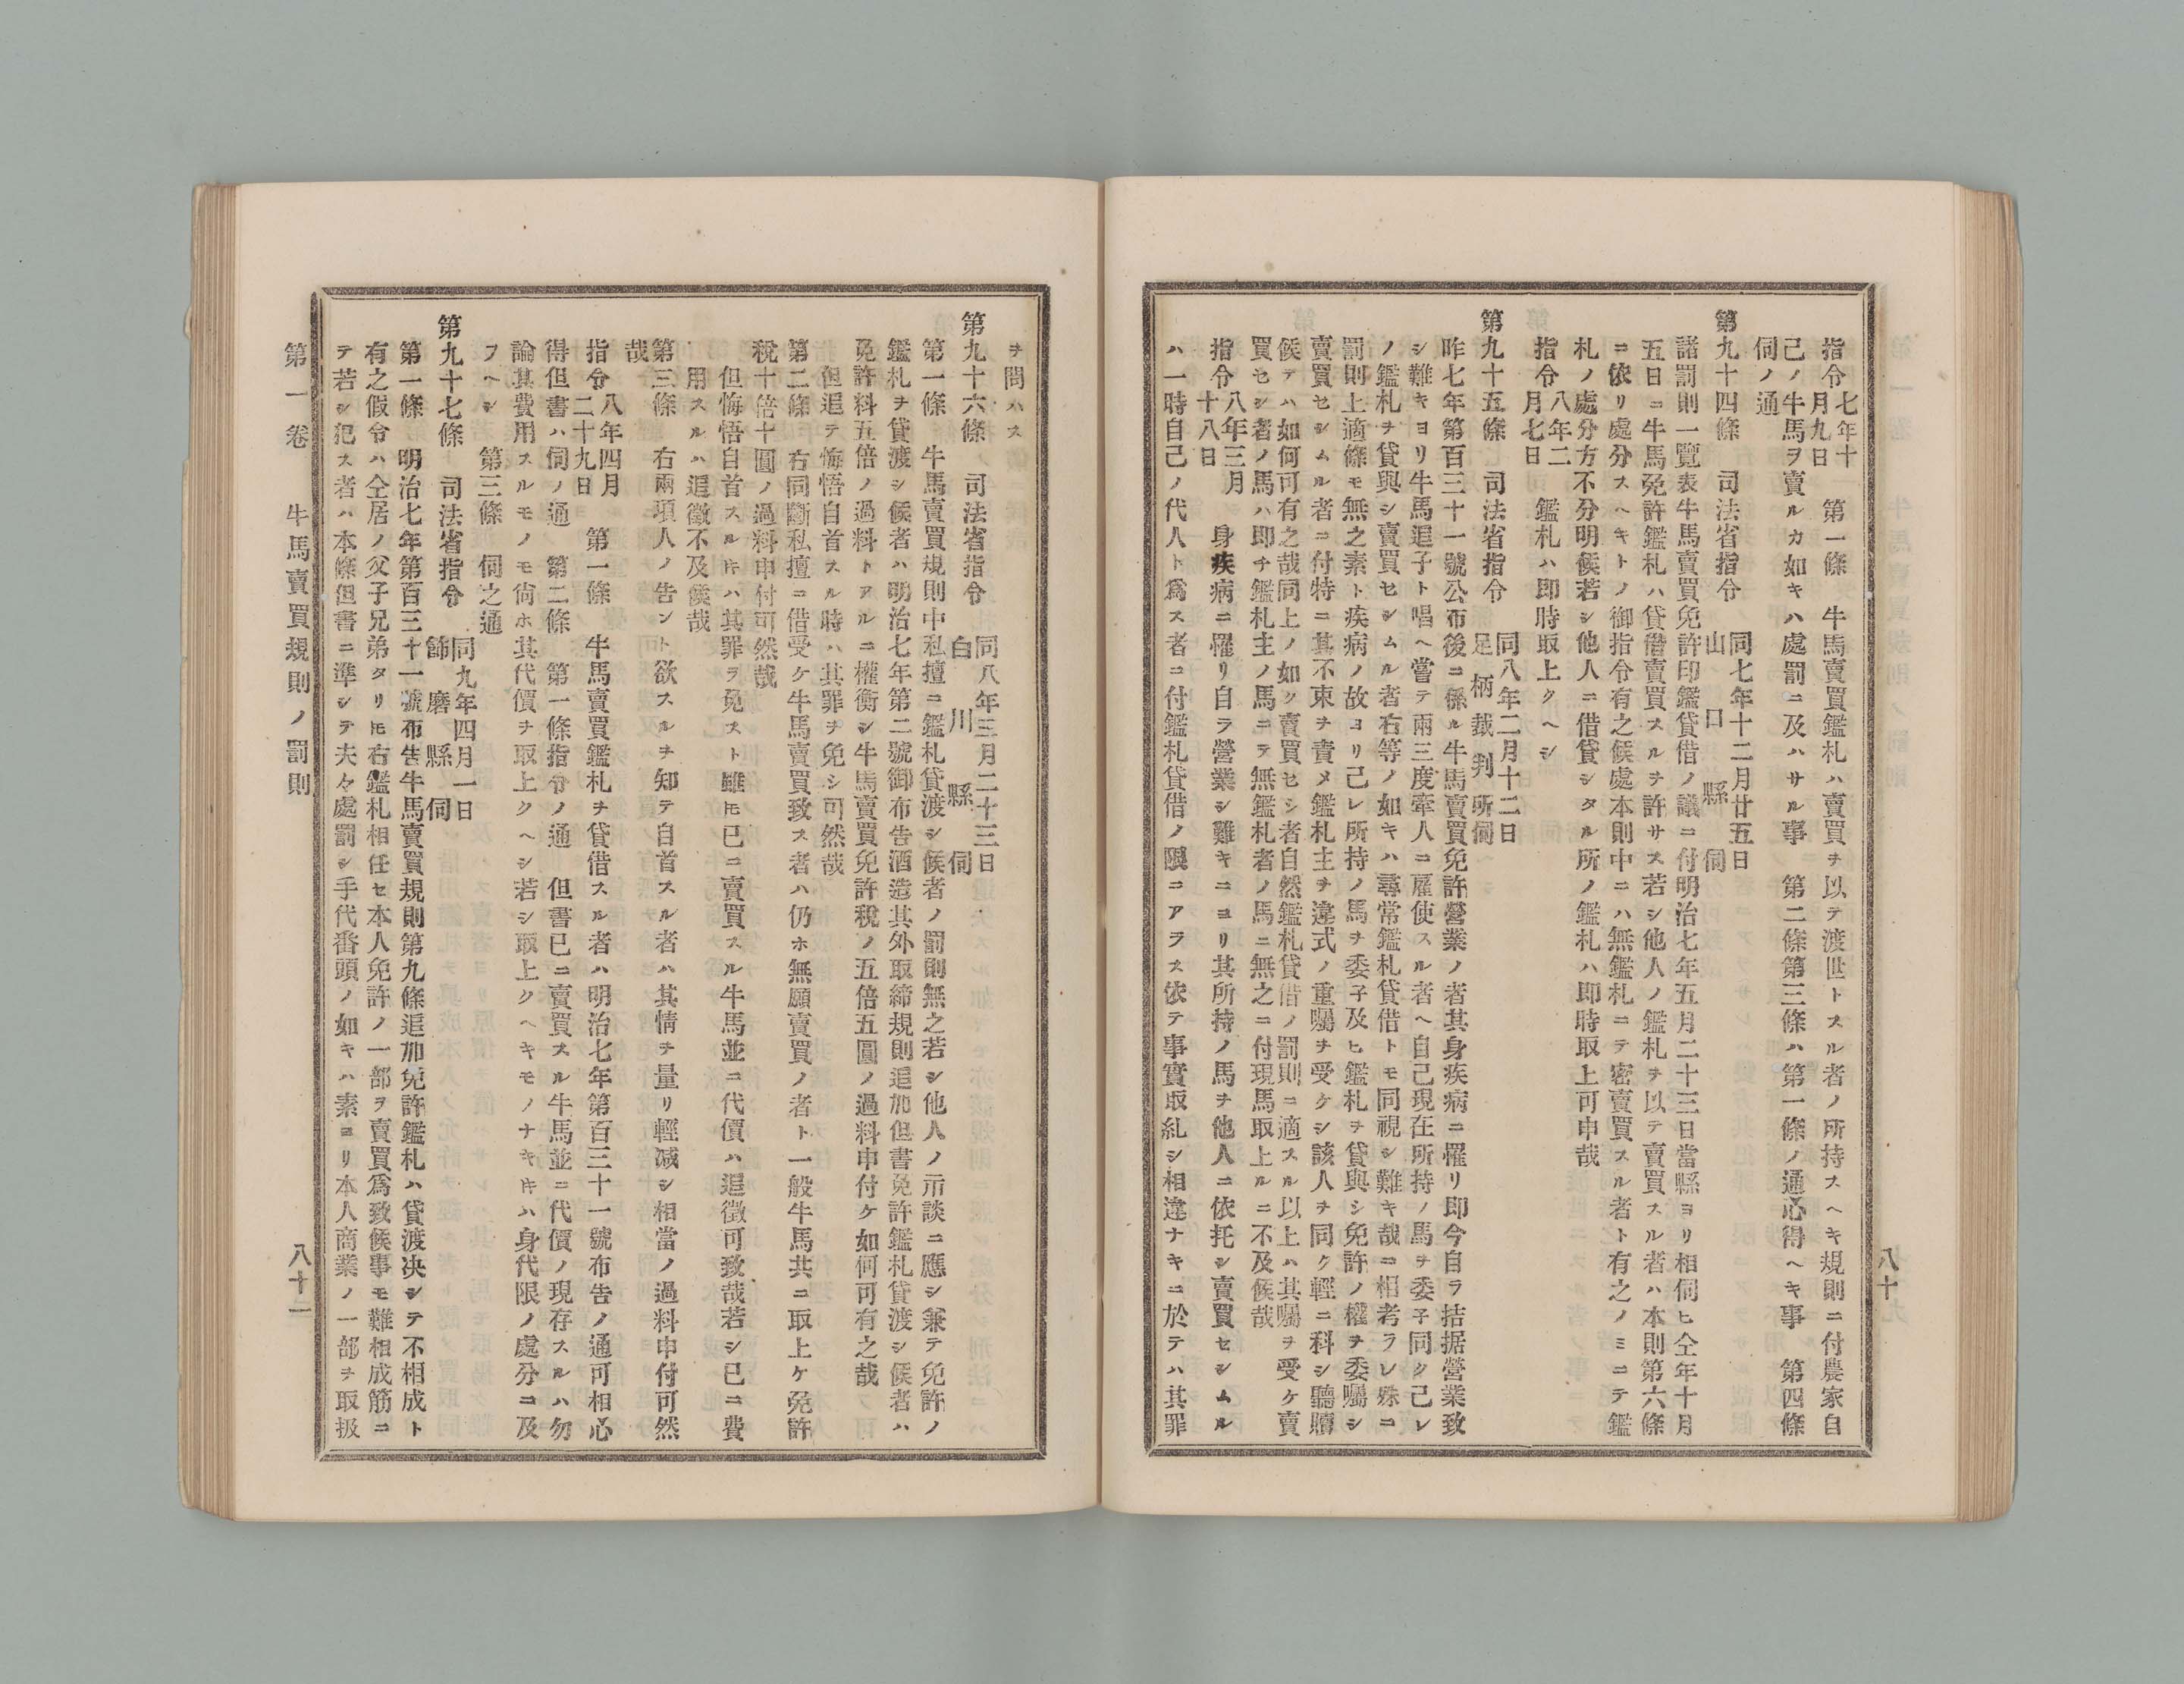 八十
指令七年十月九日　第一條　牛馬賣買鑑札ハ賣買ヲ以テ渡世トスル者ノ所持スヘキ規則ニ付農家自
己ノ牛馬ヲ賣ルカ如キハ處罰ニ及ハサル事　第二條第三條ハ第一條ノ通心得ヘキ事　第四條
伺ノ通
第九十四條　司法省指令　同七年十二月廿五日　山口縣伺
諸罰則一覽表牛馬賣買免許印鑑貸借ノ議ニ付明治七年五月二十三日當縣ヨリ相伺ヒ仝年十月
五日ニ牛馬免許鑑札ハ貸借賣買スルヲ許サス若シ他人ノ鑑札ヲ以テ賣買スル者ハ本則第六條
ニ依リ處分スヘキトノ御指令有之候處本則中ニハ無鑑札ニテ密賣買スル者ト有之ノミニテ鑑
札ノ處分方不分明候若シ他人ニ借貸シタル所ノ鑑札ハ即時取上可申哉
指令八年二月七日　鑑札ハ即時取上クヘシ
第九十五條　司法省指令　同八年二月十二日　足柄裁判所伺
昨七年第百三十一號公布後ニ係ル牛馬賣買免許營業ノ者其身疾病ニ罹リ即今自ラ拮据營業致
シ難キヨリ牛馬追子ト唱ヘ嘗テ兩三度牽人ニ雇使スル者ヘ自己現在所持ノ馬ヲ委子同ク己レ
ノ鑑札ヲ貸與シ賣買セシムル者右等ノ如キハ尋常鑑札貸借トモ同視シ難キ哉ニ相考ラレ殊ニ
罰則上適條モ無之素ト疾病ノ故ヨリ己レ所持ノ馬ヲ委子及ヒ鑑札ヲ貸與シ免許ノ權ヲ委囑シ
賣買セシムル者ニ付特ニ其不束ヲ責メ鑑札主ヲ違式ノ重囑ヲ受ケシ該人ヲ同ク輕ニ科シ聽贖
候テハ如何可有之哉同上ノ如ク賣買セシ者自然鑑札貸借ノ罰則ニ適スル以上ハ其囑ヲ受ケ賣
買セシ者ノ馬ハ即チ鑑札主ノ馬ニテ無鑑札者ノ馬ニ無之ニ付現馬取上ルニ不及候哉
指令八年三月十八日　身疾病ニ罹リ自ラ營業シ難キニヨリ其所持ノ馬ヲ他人ニ依托シ賣買セシムル
ハ一時自己ノ代人ト爲ス者ニ付鑑札貸借ノ限ニアラス依テ事實取糺シ相違ナキニ於テハ其罪
ヲ問ハス
第九十六條　司法省指令　同八年三月二十三日　白川縣伺
第一條　牛馬賣買規則中私擅ニ鑑札貸渡シ候者ノ罰則無之若シ他人ノ示談ニ應シ兼テ免許ノ
鑑札ヲ貸渡シ候者ハ明治七年第二號御布告酒造其外取締規則追加但書免許鑑札貸渡シ候者ハ
免許料五倍ノ過料トアルニ權衡シ牛馬賣買免許稅ノ五倍五圓ノ過料申付ケ如何可有之哉
但追テ悔悟自首スル時ハ其罪ヲ免シ可然哉
第二條　右同斷私擅ニ借受ケ牛馬賣買致ス者ハ仍ホ無願賣買ノ者ト一般牛馬共ニ取上ケ免許
稅十倍十圓ノ過料申付可然哉
但悔悟自首スルキハ其罪ヲ免スト雖モ已ニ賣買スル牛馬並ニ代價ハ追徵可致哉若シ已ニ費
用スルハ追徵不及候哉
第三條　右兩項人ノ告ント欲スルヲ知テ自首スル者ハ其情ヲ量リ輕减シ相當ノ過料申付可然
哉
指令八年四月二十九日　第一條　牛馬賣買鑑札ヲ貸借スル者ハ明治七年第百三十一號布告ノ通可相心
得但書ハ伺ノ通　第二條　第一條指令ノ通　但書已ニ賣買スル牛馬並ニ代價ノ現存スルハ勿
論其費用スルモノモ尙ホ其代價ヲ取上クヘシ若シ取上クヘキモノナキキハ身代限ノ處分ニ及
フヘシ　第三條　伺之通
第九十七條　司法省指令　同九年四月一日　飾磨縣伺
第一條　明治七年第百三十一號布告牛馬賣買規則第九條追加免許鑑札ハ貸渡決シテ不相成ト
有之假令ハ仝居ノ父子兄弟タリモ右鑑札相任セ本人免許ノ一部ヲ賣買爲致候事モ難相成筋ニ
テ若シ犯ス者ハ本條但書ニ準シテ夫々處罰シ手代番頭ノ如キハ素ヨリ本人商業ノ一部ヲ取扱
第一卷　牛馬賣買規則ノ罰則　八十一